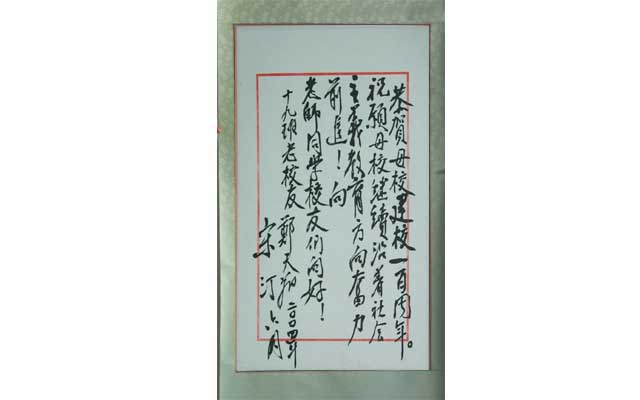 恭賀母校建校一百周年。
祝願母校继續沿着社会
主義教育方向奮力
前進！向
老師同學校友们问好！
十九班老校友 鄭天翔 二〇〇四年
宋汀 六月